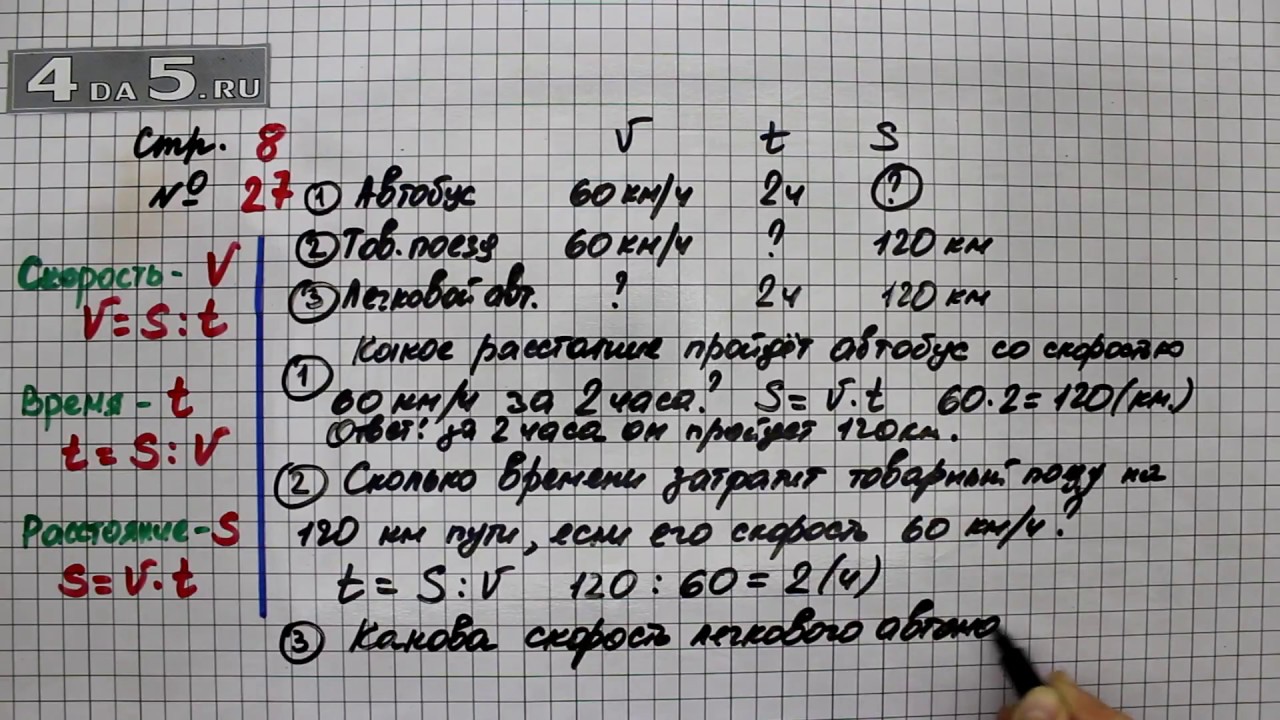 4 DA 5.RU
Стр. 8
№ 27
V t S
① Автобус 60 км/ч 2ч ?
② Тов. поезд 60 км/ч ? 120 км
③ Легковой авт. ? 2ч 120 км
Скорость - V
V = S : t
Время - t
t = S : V
Расстояние - S
S = V · t
① Какое расстояние пройдёт автобус со скоростью
60 км/ч за 2 часа? S = V · t 60 · 2 = 120 (км.)
Ответ: за 2 часа он пройдет 120 км.
② Сколько времени затратит товарный поезд на
120 км пути, если его скорость 60 км/ч?
t = S : V 120 : 60 = 2 (ч)
③ Какова скорость легкового автомо